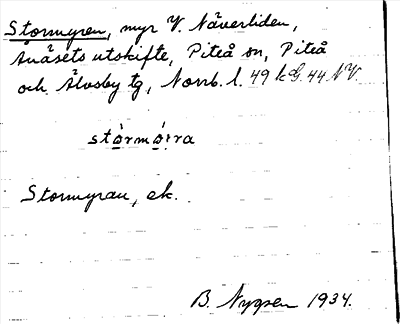 Stormyren, myr V. Näverliden,
Änäsets utskifte, Piteå sn, Piteå
och Älvsby tg, Norrb. l. 49 k G. 44 NV.
stòrmỏ̀rra
Stormyran, ek.
B. Nygren 1934.